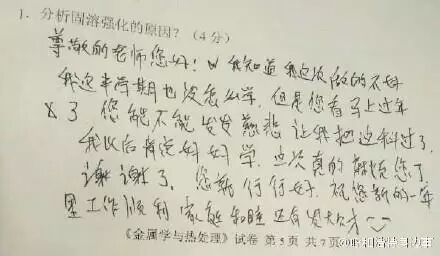 1. 分析固溶强化的原因？（4分）
尊敬的老师您好！我知道我这次做的不好
我这半学期也没怎么学，但是您看马上过年
了 您能不能发发慈悲 让我把这科过了，
我以后肯定好好学，这次真的麻烦您了，
谢谢了，您就行行好，祝您新的一年
里工作顺利 家庭和睦 还有发大财
《金属学与热处理》试卷 第5页 共7页